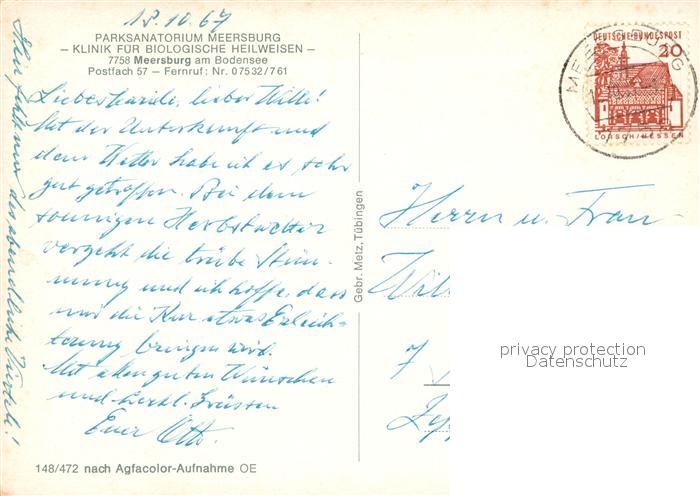 18.10.67
PARKSANATORIUM MEERSBURG
– KLINIK FÜR BIOLOGISCHE HEILWEISEN –
7758 Meersburg am Bodensee
Postfach 57 – Fernruf: Nr. 07532/761
Liebe, lieber Willi!
Mit der Unterkunft und
dem Wetter habe ich es sehr
gut getroffen. Bei dem
sonnigen Herbstwetter
vergeht die trübe Stim-
mung und ich hoffe, dass
mir die Kur etwas Erleich-
terung bringen wird.
Mit allen guten Wünschen
und herzl. Grüssen
Euer Otto.
Hier fehlt nur das abendliche!
148/472 nach Agfacolor-Aufnahme OE
Gebr. Metz, Tübingen
DEUTSCHE BUNDESPOST
20
LORSCH/HESSEN
MEERSBURG
Herrn u. Frau
7
privacy protection
Datenschutz